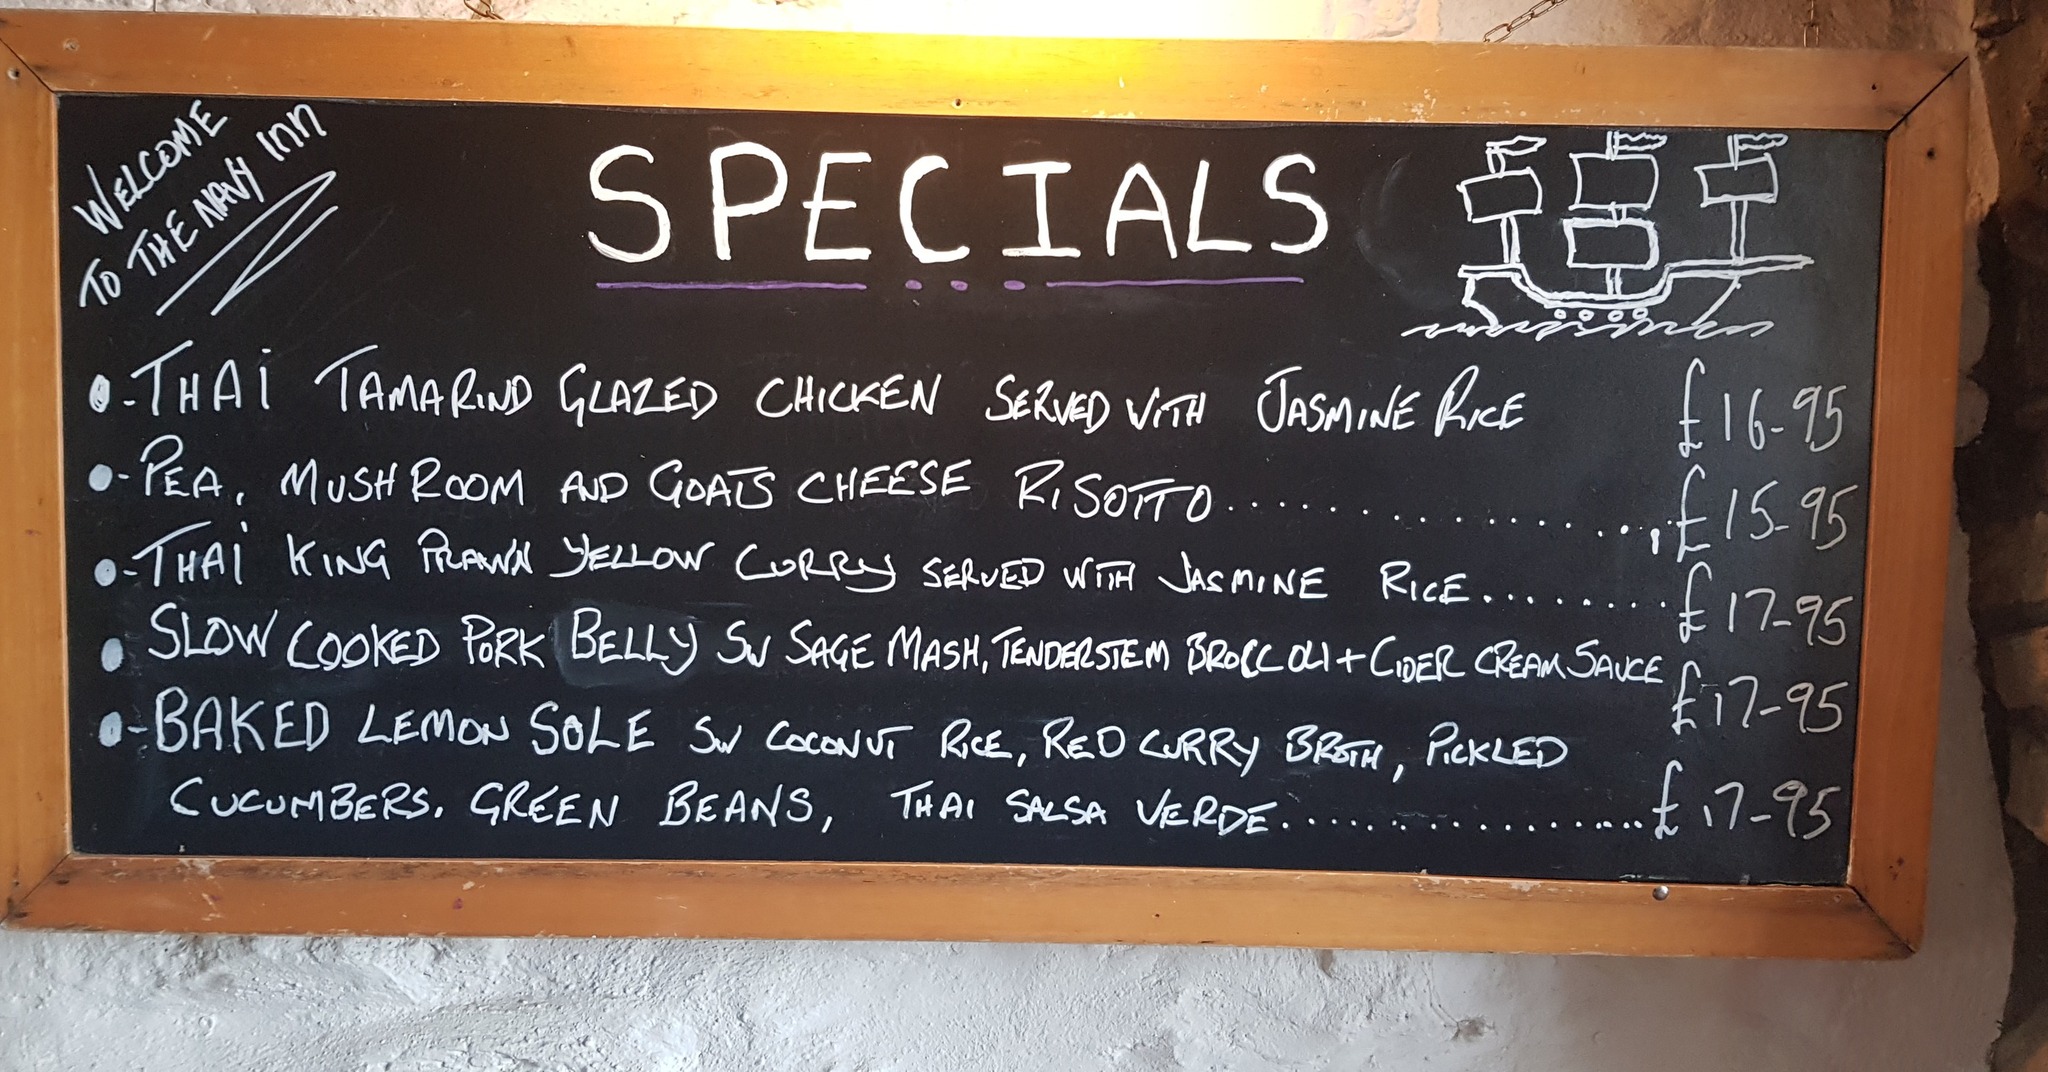 WELCOME
TO THE NAVY INN
SPECIALS
- THAI TAMARIND GLAZED CHICKEN SERVED WITH JASMINE RICE £16-95
- PEA, MUSHROOM AND GOATS CHEESE RISOTTO.................... £15-95
- THAI KING PRAWN YELLOW CURRY SERVED WITH JASMINE RICE......... £17-95
SLOW COOKED PORK BELLY SW SAGE MASH, TENDERSTEM BROCCOLI + CIDER CREAM SAUCE £17-95
- BAKED LEMON SOLE SW COCONUT RICE, RED CURRY BROTH, PICKLED
CUCUMBERS. GREEN BEANS, THAI SALSA VERDE.................... £17-95